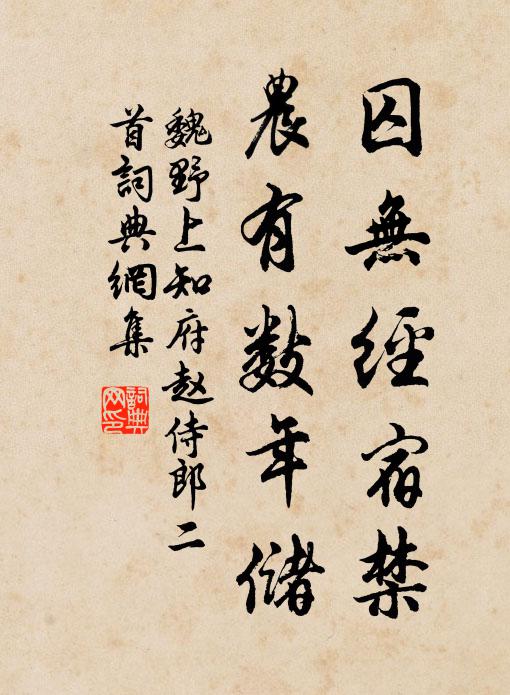 囚無經宿禁
農有数年儲
魏野上知府赵侍郎二
首詞典網集
詞典
网印